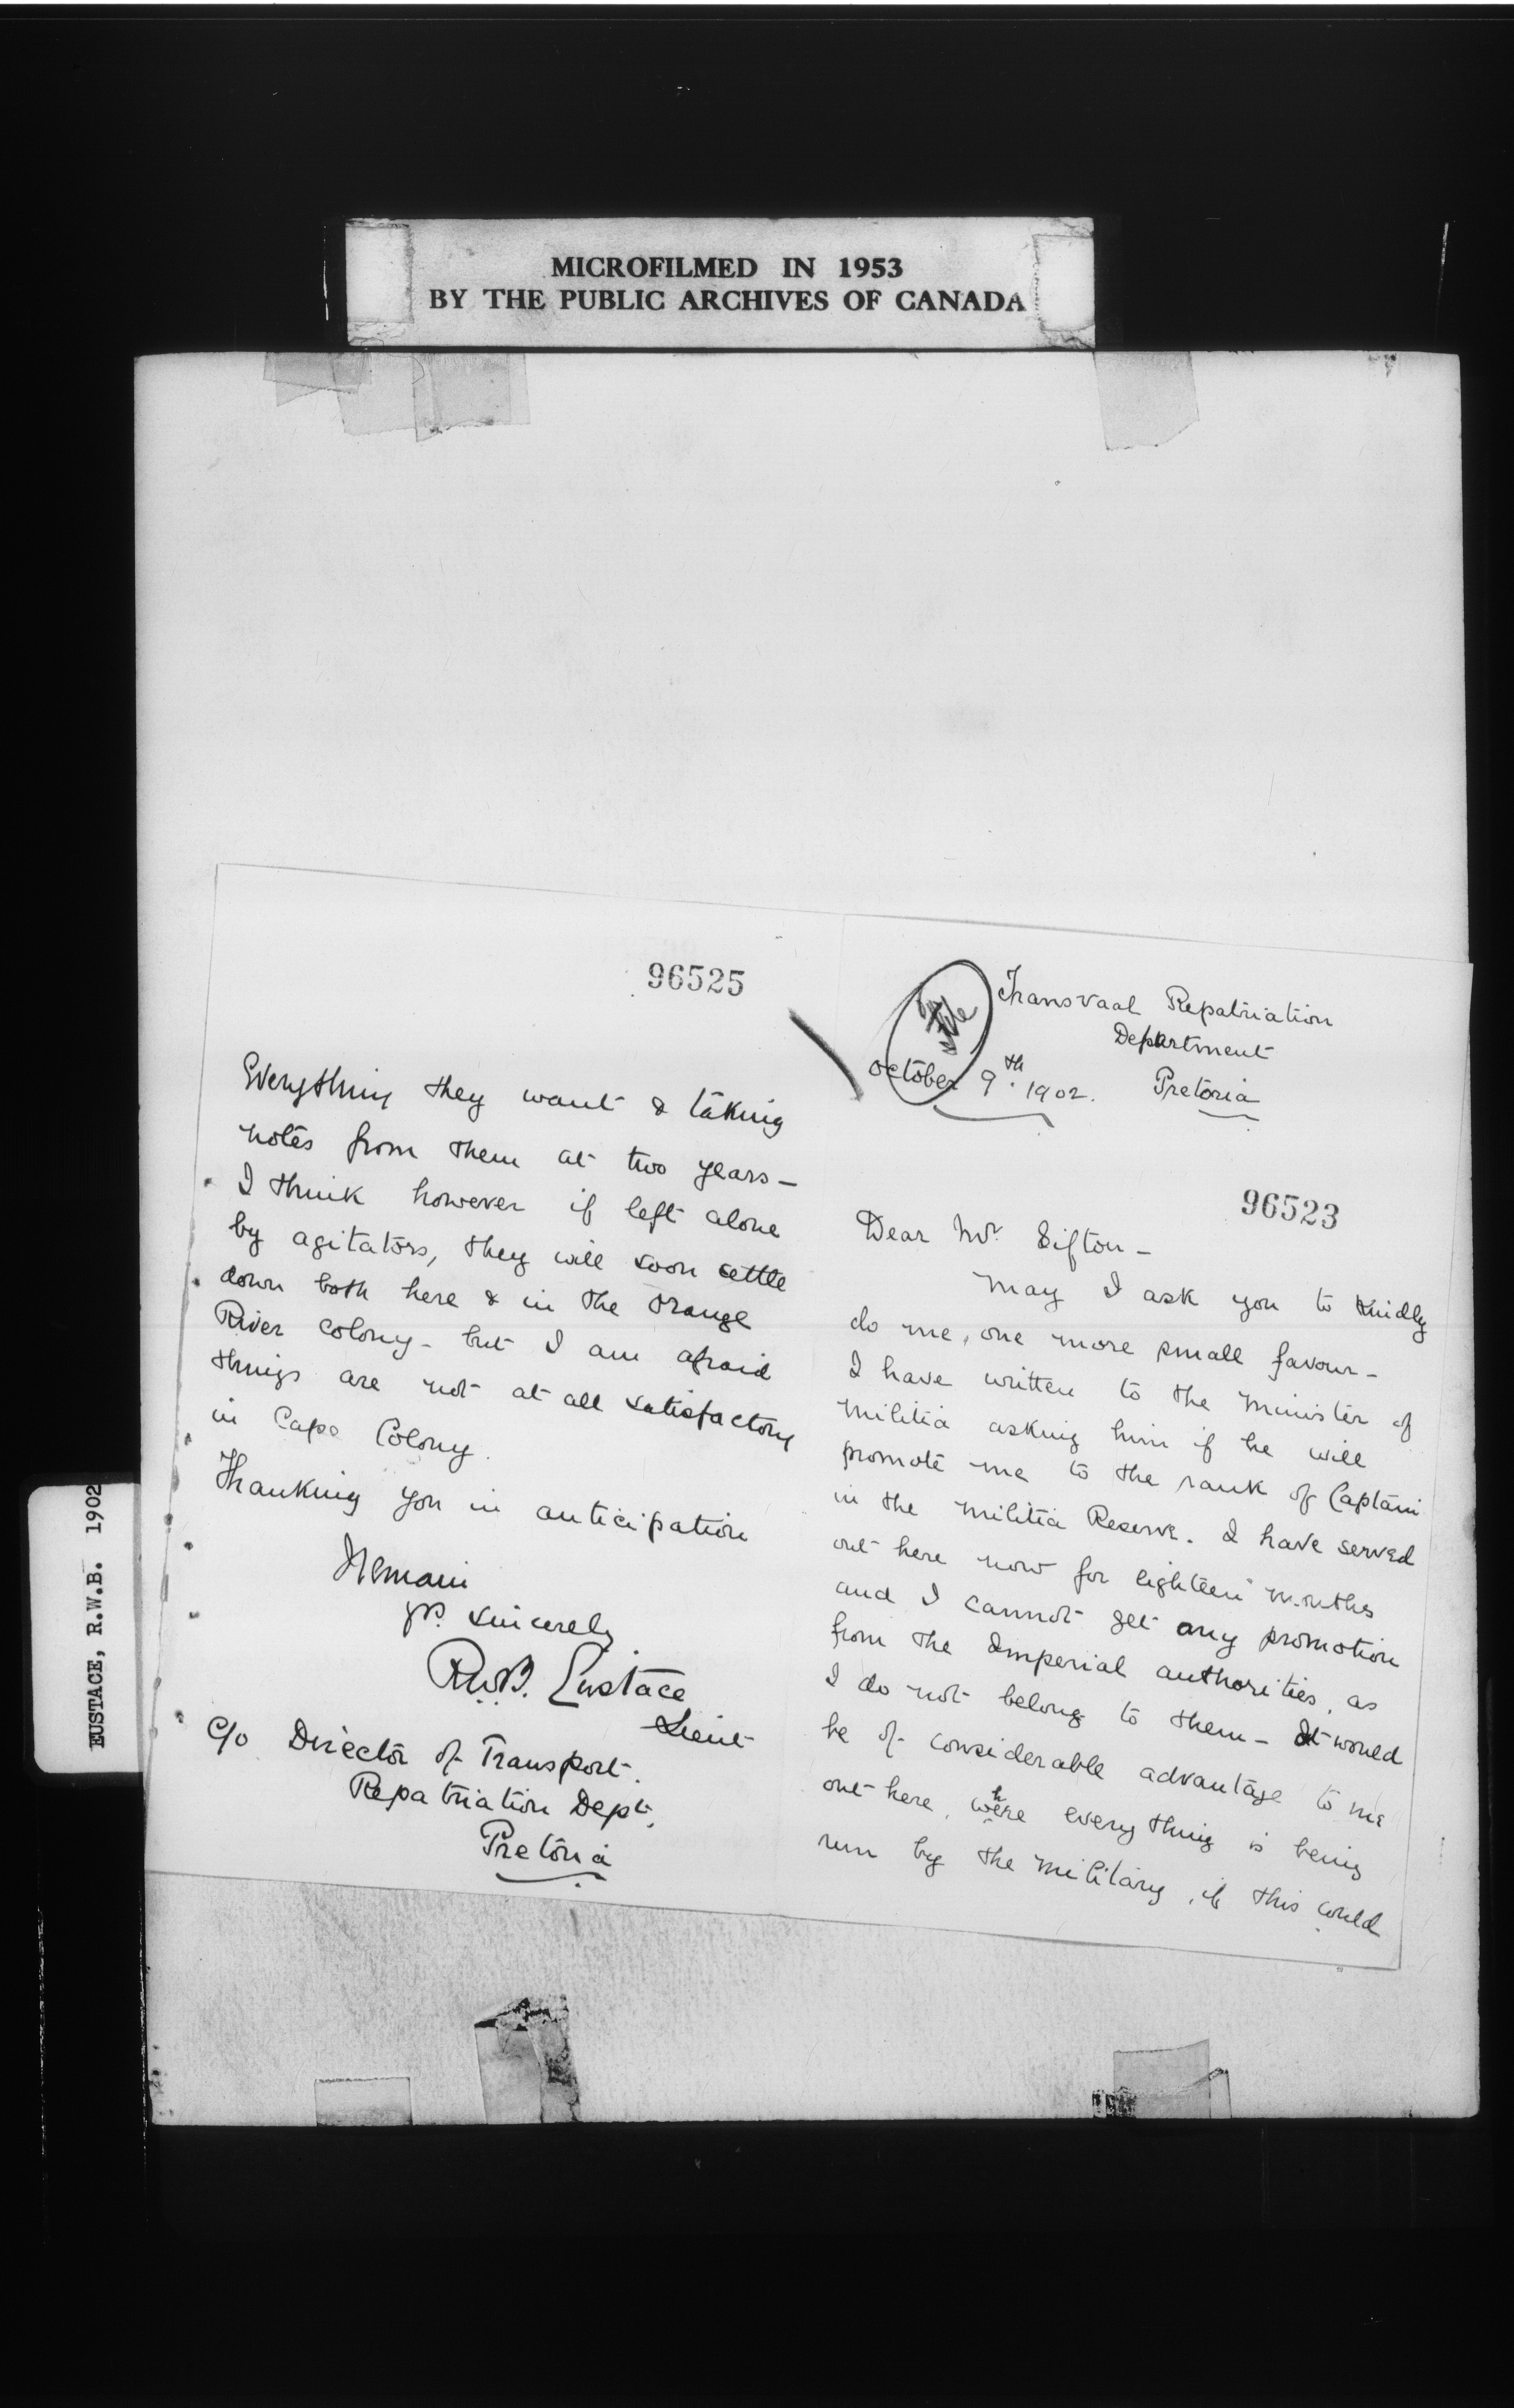 MICROFILMED IN 1953
BY THE PUBLIC ARCHIVES OF CANADA
EUSTACE, R.W.B. 1902
96525
Everything they want & taking
notes from them at two years—
I think however if left alone
by agitators, they will soon settle
down both here & in the Orange
River Colony - but I am afraid
things are not at all satisfactory
in Cape Colony.
Thanking you in anticipation
I remain
yrs. sincerely
R.W.B. Eustace
Lieut
C/o Director of Transport.
Repatriation Dept.
Pretoria
Transvaal Repatriation
Department
October 9th. 1902. Pretoria
96523
Dear Mr. Sifton—
May I ask you to kindly
do me, one more small favour—
I have written to the Minister of
Militia asking him if he will
promote me to the rank of Captain
in the Militia Reserve. I have served
out here now for eighteen months
and I cannot get any promotion
from the Imperial authorities, as
I do not belong to them— It would
be of considerable advantage to me
out here, where everything is being
run by the military, if this could